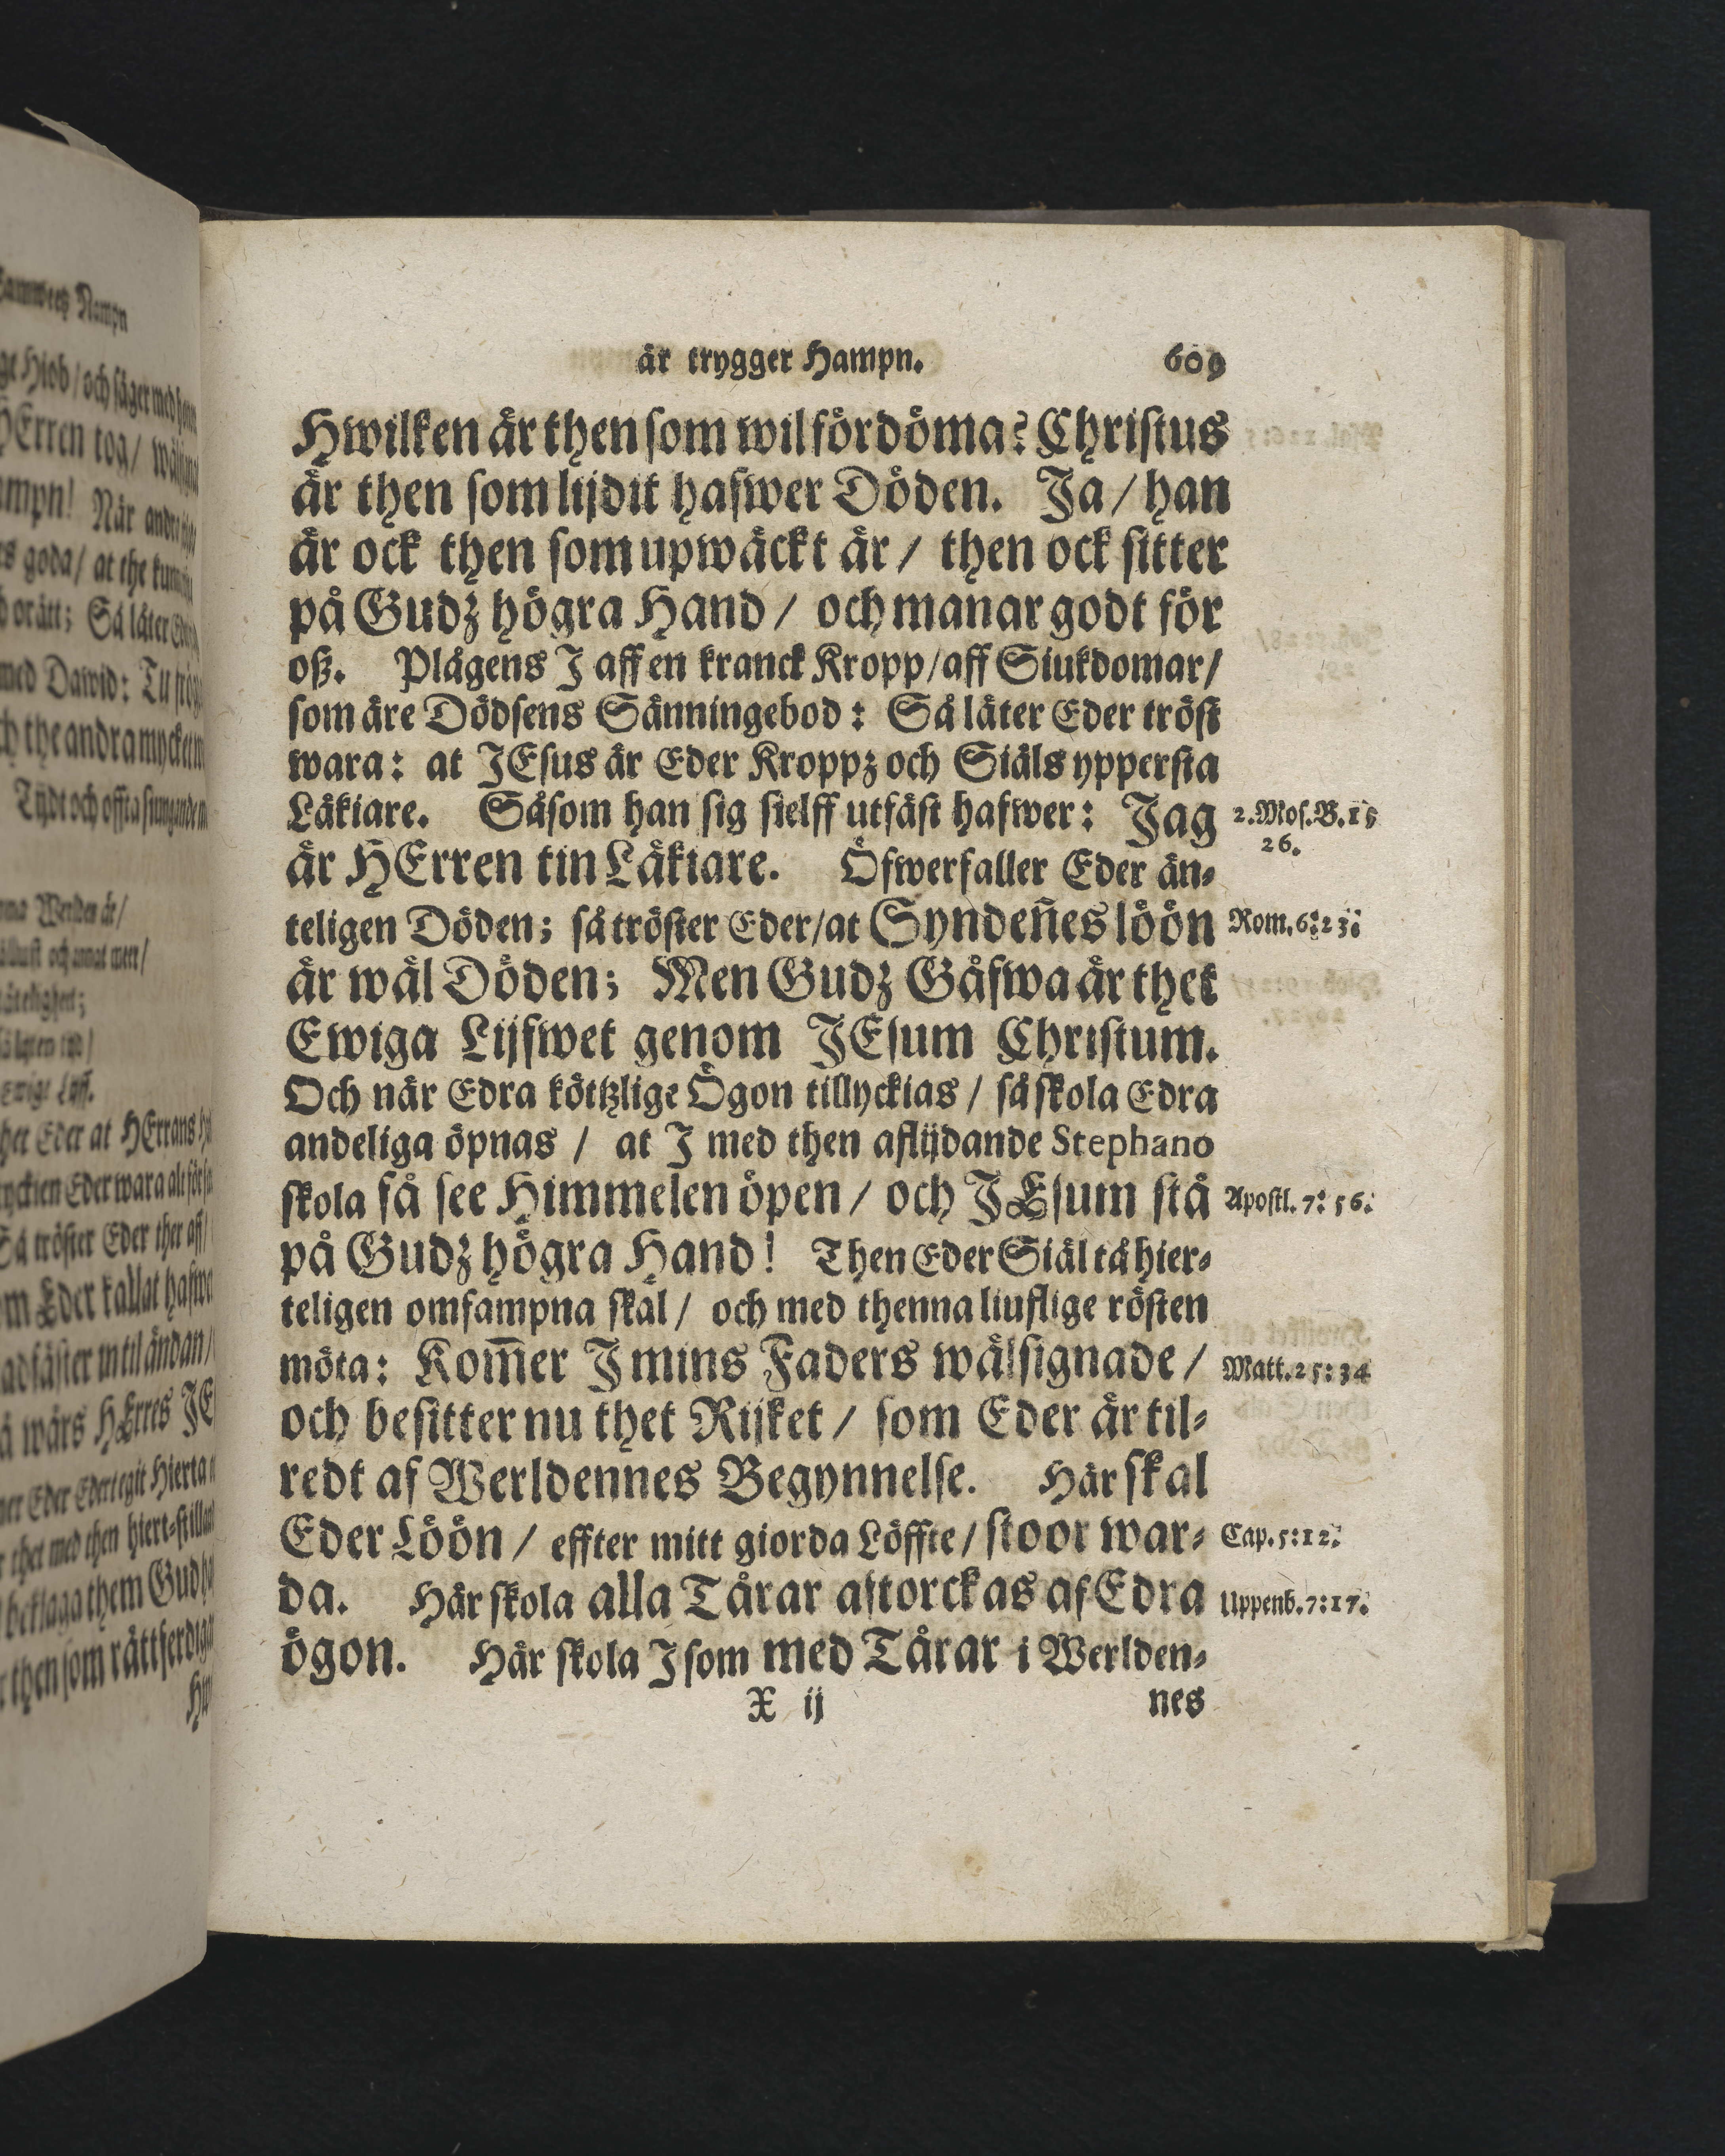 är trygger Hampn. 609
Hwilken är then som wil fördöma? Christus
är then som lijdit hafwer Döden. Ja / han
är ock then som upwäckt är / then ock sitter
på Gudz högra Hand / och manar godt för
oß. Plågens J aff en kranck Kropp / aff Siukdomar /
som äre Dödsens Sänningebod: Så låter Eder tröst
wara: at JEsus är Eder Kroppz och Siäls yppersta
Läkiare. Såsom han sig sielff utfäst hafwer: Jag 2. Mos. B. 15
26.
är HErren tin Läkiare. Öfwerfaller Eder än-
teligen Döden; så tröster Eder / at Syndeñes löön Rom. 6: 23.
är wäl Döden; Men Gudz Gåfwa är thet
Ewiga Lijfwet genom JEsum Christum.
Och när Edra köttzlige Ögon tillyckias / så skola Edra
andeliga öpnas / at J med then aflijdande Stephano
skola få see Himmelen öpen / och JEsum stå Apostl. 7: 56.
på Gudz högra Hand! Then Eder Siäl tå hier-
teligen omfampna skal / och med thenna liuflige rösten
möta: Kom̃er J mins Faders wälsignade / Matt. 25: 34
och besitter nu thet Rijket / som Eder är til-
redt af Werldennes Begynnelse. Här skal
Eder Löön / effter mitt giorda Löffte / stoor war- Cap. 5: 12.
da. Här skola alla Tårar aftorckas af Edra Uppenb. 7: 17.
ögon. Här skola J som med Tårar i Werlden-
X ij nes